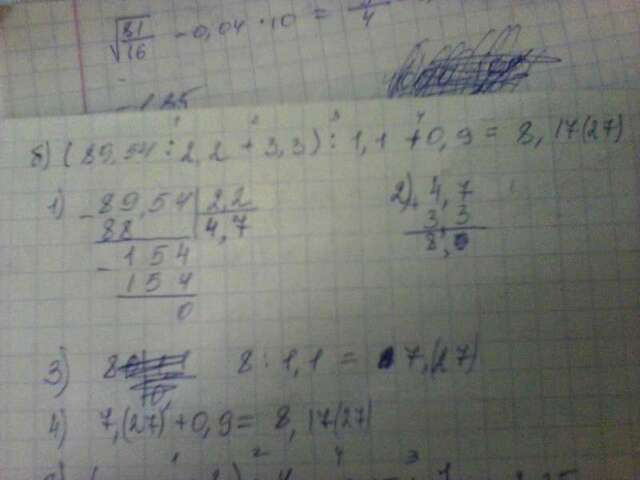 √81/16 - 0,04 · 10 =
- 1,25
1 2 3 4
б) (89,54 : 2,2 + 3,3) : 1,1 + 0,9 = 8,17(27)
1) - 89,54 | 2,2
88 4,7
- 154
154
0
2) 4,7
3,3
8,0
3) 8 : 1,1 = 7,(27)
4) 7,(27) + 0,9 = 8,17(27)
1 2 4 3